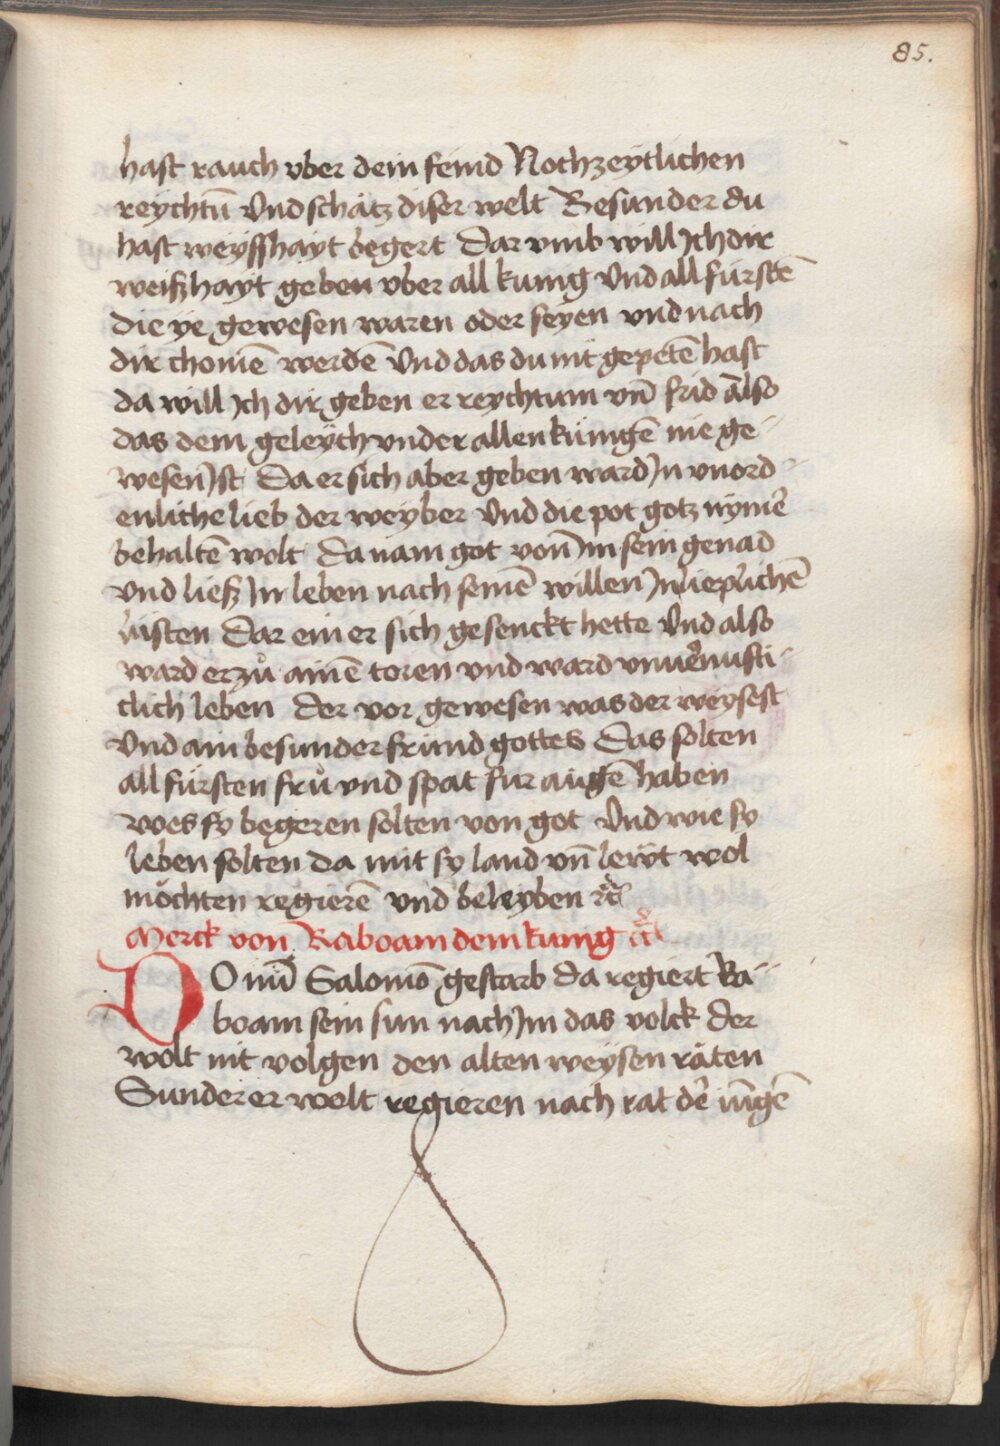 85.
hast rauch vber dein feind Noch zeytlichen
reychtu͞m Vnd schätz diser welt Besunder du
hast weysshayt begert Dar vmb will Jch dir
weißhayt geben vber all kunig Vnd all fürste͞n
die ye gewesen waren oder seyen vnd nach
dir chome͞n werde͞n Vnd das du nit gepete͞n hast
da will Jch dir geben er reychtum vn͞d frid Also
das dem geleych vnder allen künige͞n nie ge-
wesen Jst Da er sich aber geben ward Jn vnord-
enliche lieb der weyber Vnd die pot gotz nyme͞r
behalte͞n wolt Da nam got von Jm sein genad
Vnd ließ Jn leben nach seine͞m willen Jn lieplichen
lüsten Dar ein er sich gesenckt hette Vnd also
ward er zů aine͞m toren vnd ward vnue͞rnufti-
clich leben der vor gewesen was der weysest
Vnd ain besunder frund gottes Das solten
all fürsten frů vnd spat fur auge͞n haben
wes sy begeren solten von got Vnd wie sy
leben solten da mit sy land vn͞d lewt wol
möchten regiere͞n vnd beleyben ꝛc͞
Merck von Raboam dem kunig ꝛc͞
DO nu͞n Salomo͞n gestarb da regiert Ra-
boam sein sun nach Jm das volck der
wolt nit volgen den alten weysen räten
Sunder er wolt regieren nach rat de͞r iu͞nge͞n